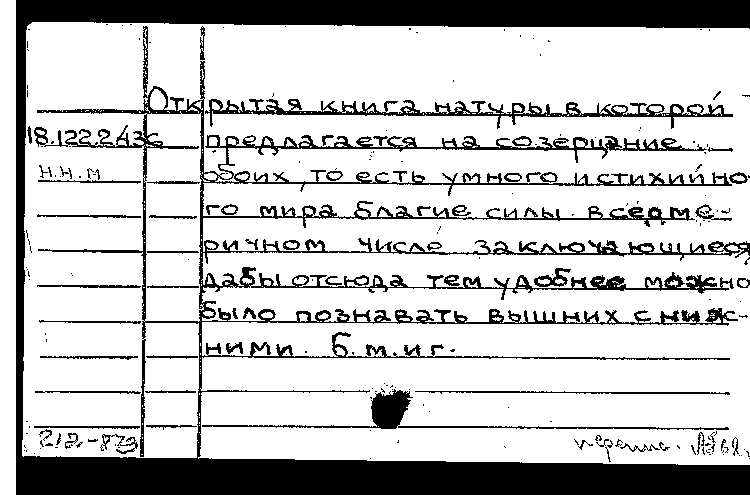 Открытая книга натуры в которой
18.122.2.436 предлагается на созерцание
Н.Н.М обоих, то есть умного и стихийно-
го мира благие силы в седме-
ричном числе заключающиеся
дабы отсюда тем удобнее можно
было познавать вышних с ниж-
ними. б.м.и г.
212.-873